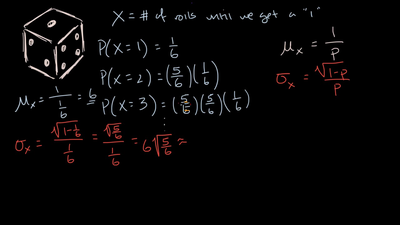 X = # of rolls until we get a "1"
P(X=1) = 1/6
P(X=2) = (5/6)(1/6)
P(X=3) = (5/6)(5/6)(1/6)
⋮
μx = 1/(1/6) = 6
σx = √(1-1/6)/(1/6) = √(5/6)/(1/6) = 6√(5/6) ≈
μx = 1/p
σx = √(1-p)/p